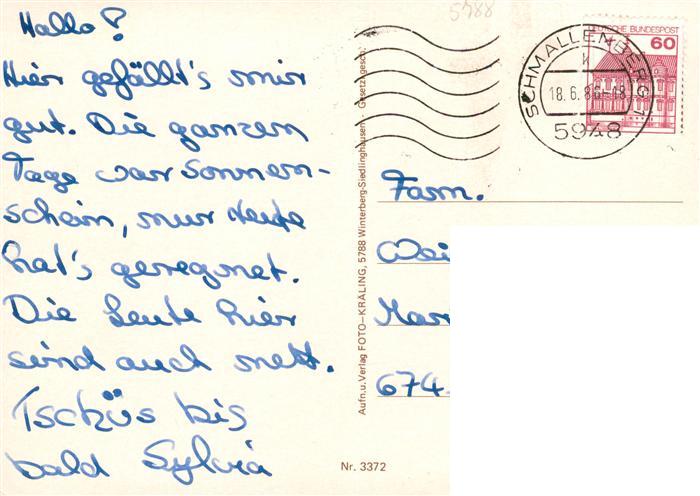 Hallo!
Hier gefällt's mir
gut. Die ganzen
Tage war Sonnen-
schein, nur heute
hat's geregnet.
Die Leute hier
sind auch nett.
Tschüs bis
bald Sylvia
5788
Aufn. u. Verlag FOTO–KRALING, 5788 Winterberg-Siedlinghausen Gesetzl. gesch.
Nr. 3372
DEUTSCHE BUNDESPOST
60
SCHMALLENBERG
18.6.86-18
5948
Fam.
674